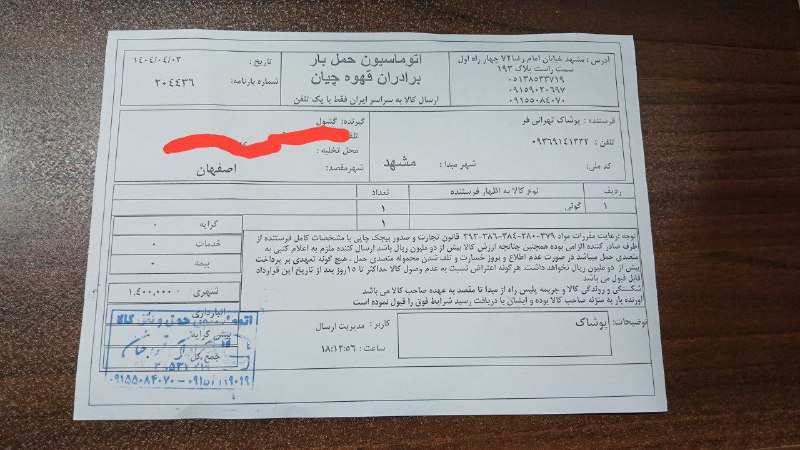 آدرس: مشهد خیابان امام رضا۷۲ چهار راه اول
سمت راست پلاک ۱۹۳
۰۵۱۳۸۵۳۳۷۱۹
۰۹۱۵۹۰۲۰۶۹۷
۰۹۱۵۵۰۸۴۰۷۰
اتوماسیون حمل بار
برادران قهوه چیان
ارسال کالا به سراسر ایران فقط با یک تلفن
تاریخ: ۱۴۰۴/۰۴/۰۳
شماره بارنامه: ۲۰۴۴۳۶
فرستنده: پوشاک تهرانی فر
تلفن: ۰۹۳۶۹۱۴۱۳۳۲
کد ملی:
شهر مبدا: مشهد
گیرنده: گشول
محل تخلیه:
شهرمقصد: اصفهان
ردیف نوع کالا به اظهار فرستنده تعداد
۱ گونی ۱
۱
کرایه ۰
خدمات ۰
بیمه ۰
شهری ۱,۴۰۰,۰۰۰
انبارداری
پیش کرایه
جمع کل
توجه :رعایت مقررات مواد ۳۷۹-۲۸۰-۳۸۴-۳۸۶-۳۹۳ قانون تجارت و صدور بیجک چاپی با مشخصات کامل فرستنده از
طرف صادر کننده الزامی بوده همچنین چنانچه ارزش کالا بیش از دو ملیون ریال باشد ارسال کننده ملزم به اعلام کتبی به
متصدی حمل میباشد در صورت عدم اطلاع و بروز خسارت و تلف شدن محموله متصدی حمل , هیچ گونه تعهدی بر پرداخت
بیش از دو ملیون ریال نخواهد داشت. هرگونه اعتراض نسبت به عدم وصول کالا حداکثر تا ۱۵ روز بعد از تاریخ این قرارداد
قابل قبول می باشد
شکستگی و روندگی کالا و جریمه پلیس راه از مبدا تا مقصد به عهده صاحب کالا می باشد
آورنده بار به منزله صاحب کالا بوده و ایشان با دریافت رسید شرایط فوق را قبول نموده است
توضیحات: پوشاک
کاربر: مدیریت ارسال
ساعت: ۱۸:۱۲:۵۶
اتوماسیون حمل و نقل کالا
۰۹۱۵۵۰۸۴۰۷۰-